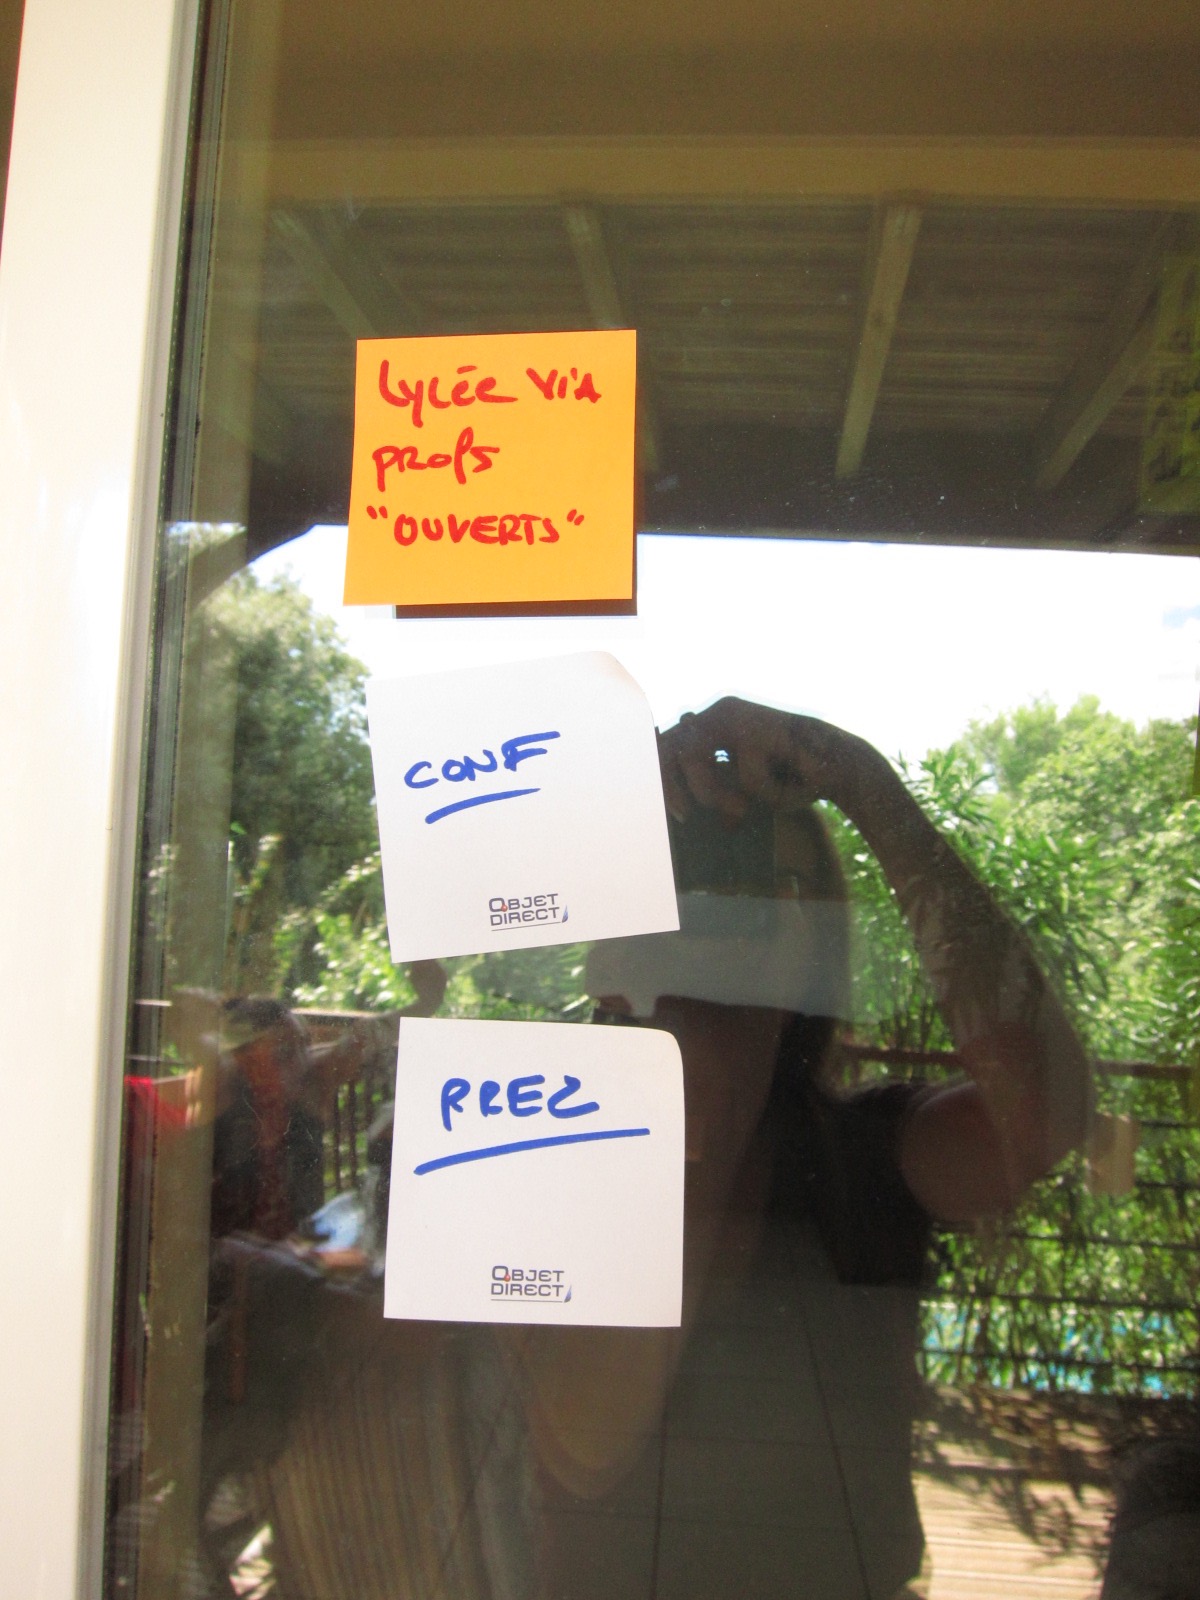 Lycée via
profs
"OUVERTS"
CONF
OBJET
DIRECT
PREZ
OBJET
DIRECT